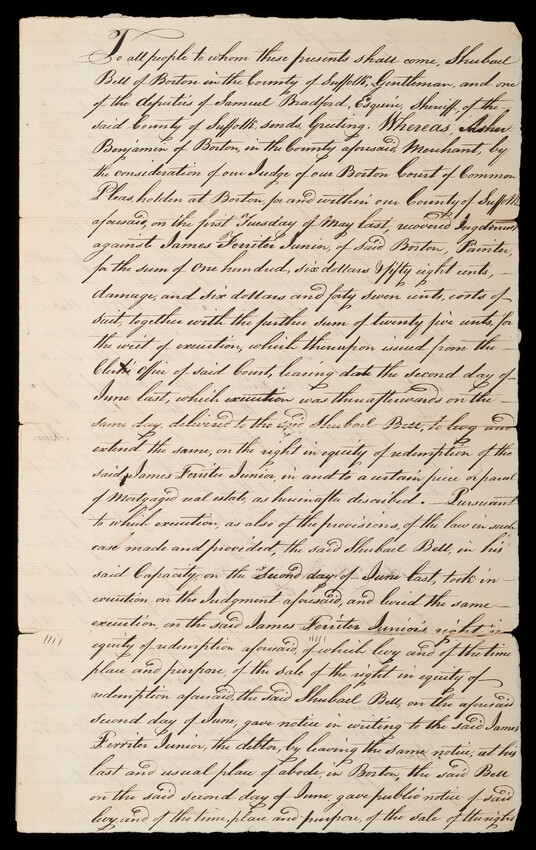 To all people to whom these presents shall come, Shubael
Bell of Boston in the County of Suffolk, Gentleman, and one
of the deputies of Samuel Bradford, Esquire, Sheriff, of the
said County of Suffolk, sends, Greeting. Whereas, Asher
Benjamin of Boston, in the County aforesaid, Merchant, by
the consideration of our Judge of our Boston Court of Common
Pleas, holden at Boston, for and within our County of Suffolk
aforesaid, on the first Tuesday of May last, recovered Judgment
against James Ferriter Junior, of said Boston, Painter,
for the sum of One hundred, six dollars & fifty eight cents, —
damage, and six dollars and forty seven cents, costs of
suit, together with the further sum of twenty five cents, for
the writ of execution, which thereupon issued from the —
Clerk's Office of said Court, bearing date the second day of
June last, which execution was thereafterwards on the —
same day, delivered to the said Shubael Bell, to levy and
extend the same, on the right in equity of redemption of the
said James Ferriter Junior, in and to a certain piece or parcel
of Mortgaged real estate, as hereinafter described. — Pursuant
to which execution, as also of the provisions, of the law in such
case made and provided, the said Shubael Bell, in his
said Capacity, on the second day of June last, took in
execution on the Judgment aforesaid, and levied the same —
execution, on the said James Ferriter Junior's right in
equity of redemption aforesaid, of which levy and of the time
place and purpose, of the sale of the right in equity of
redemption aforesaid, the said Shubael Bell, on the aforesaid
second day of June, gave notice in writing to the said James
Ferriter Junior, the debtor, by leaving the same notice, at his
last and usual place of abode, in Boston, the said Bell
on the said second day of June, gave public notice of said
levy, and of the time, place and purpose, of the sale of the right